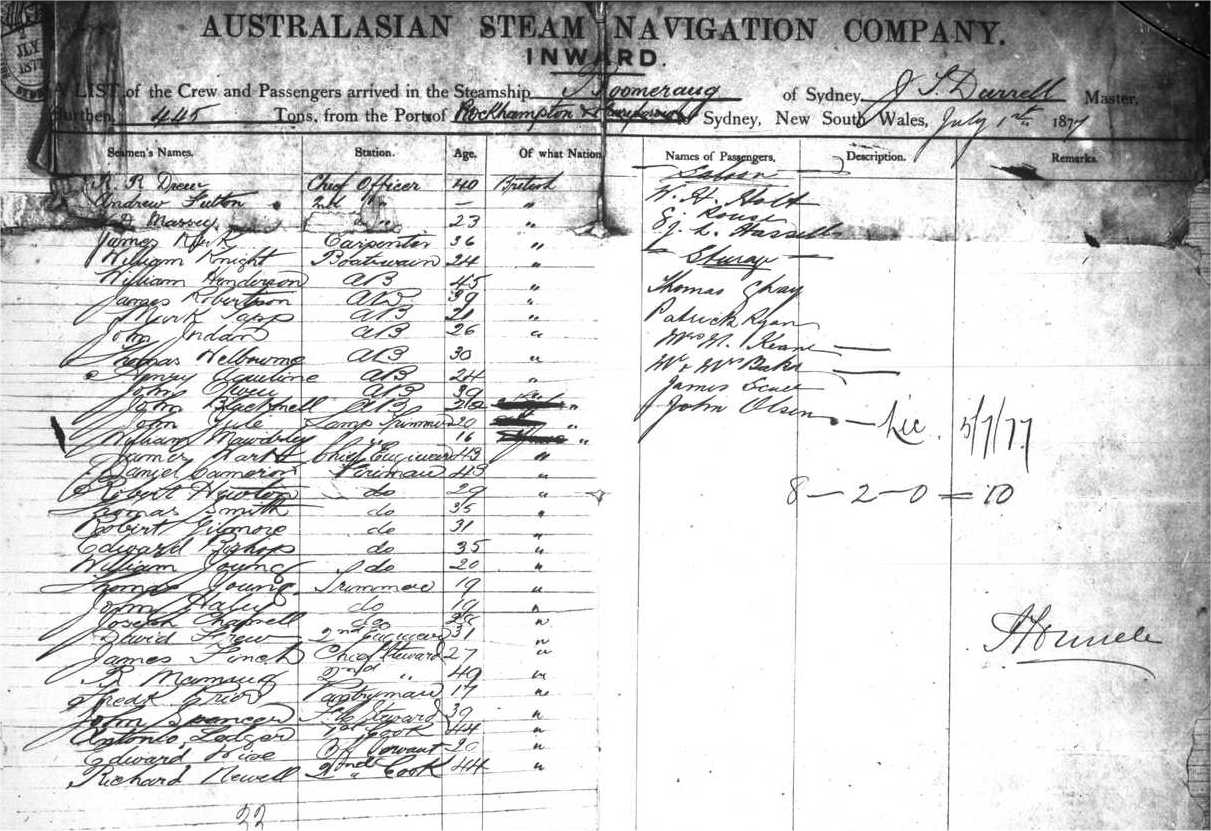 JLY
187
AUSTRALASIAN STEAM NAVIGATION COMPANY.
INWARD.
A LIST of the Crew and Passengers arrived in the Steamship Boomerang of Sydney, J S Durrell Master,
Burthen, 445 Tons, from the Port of Rockhampton & to Sydney, New South Wales, July 1st 1877
Seamen's Names. Station. Age. Of what Nation Names of Passengers. Description. Remarks.
R. R Drew Chief Officer 40 British
Andrew Fulton 2nd " — "
Massey " 23 "
James Kirk Carpenter 36 "
William Knight Boatswain 24 "
William Henderson AB 45 "
James Robertson AB 39 "
Mark AB 21 "
John Jordan AB 26 "
Thomas Welbourne AB 30 "
Henry AB 24 "
John Owen AB 39
John Blackwell AB "
John Lamp Trimmer 20 "
William Mawdsley " 16 "
James Chief Engineer 43 "
Daniel Cameron Fireman 43 "
Robert Newton do 29 "
Thomas Smith do 35 "
Robert Gilmore do 31 "
Edward Bishop do 35 "
William Young do 20 "
Thomas Young Trimmer 19 "
John Haley do 19 "
Joseph Chapnell do "
David Frew 2nd Engineer 31 "
James Finch Chief Steward 27 "
R 2nd " 49 "
Fredk Prior Pantryman 17 "
John Steward 39 "
Antonio Ledger 1st Cook 44 "
Edward Wise Servant 20 "
Richard Newell 2nd Cook 44 "
33
Saloon
W. H. Holt
E. Rouse
L. Hassell
— Sturage —
Thomas Ghay
Patrick Ryan
Mrs Keane —
Mr & Mrs Baker —
James
John Olsen
— Lic. 5/7/77
8 — 2 — 0 = 10